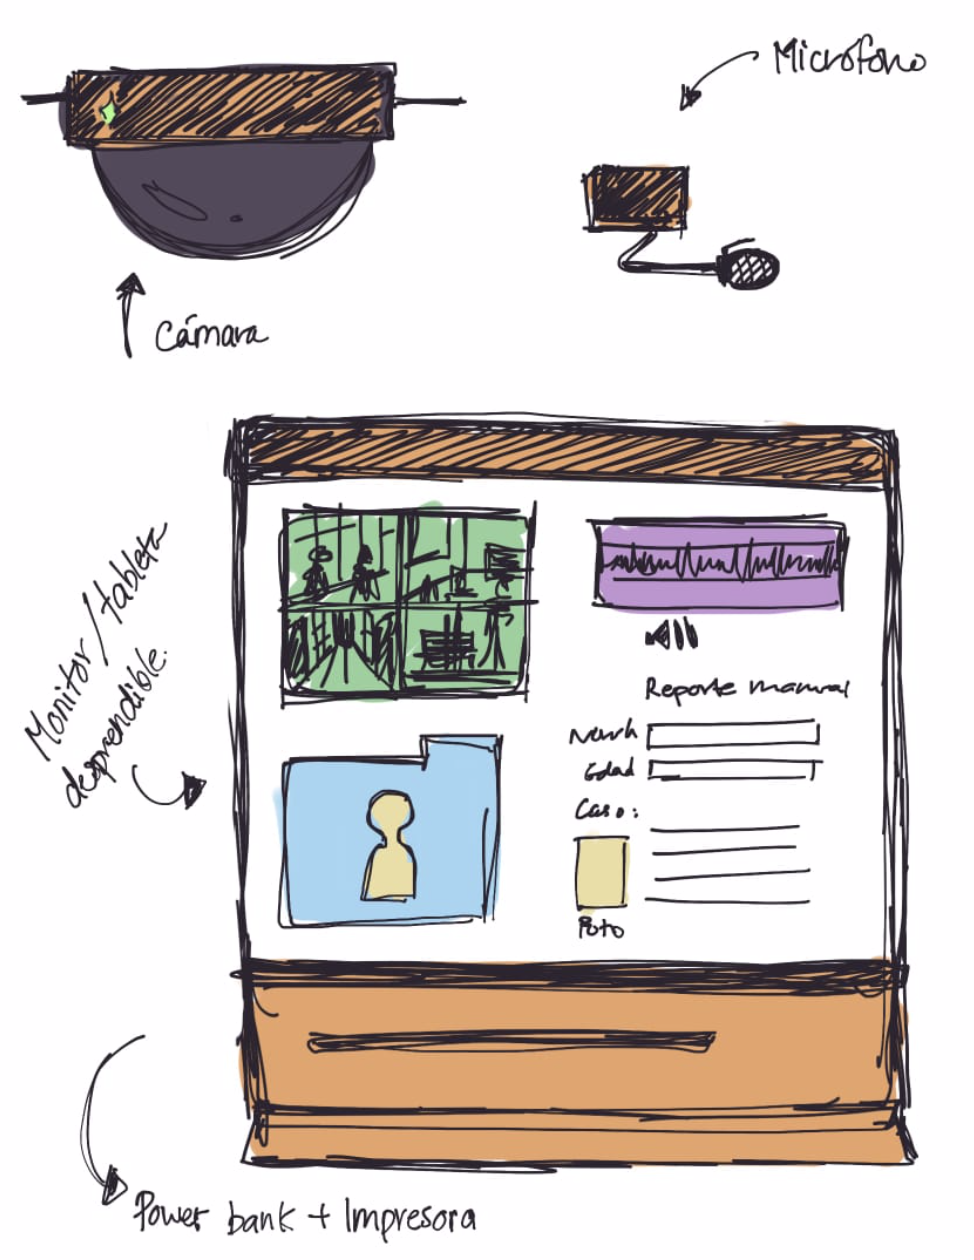 Micrófono
Cámara
Monitor/tableta
desprendible.
Reporte manual
Edad
Caso:
Foto
Power bank + Impresora